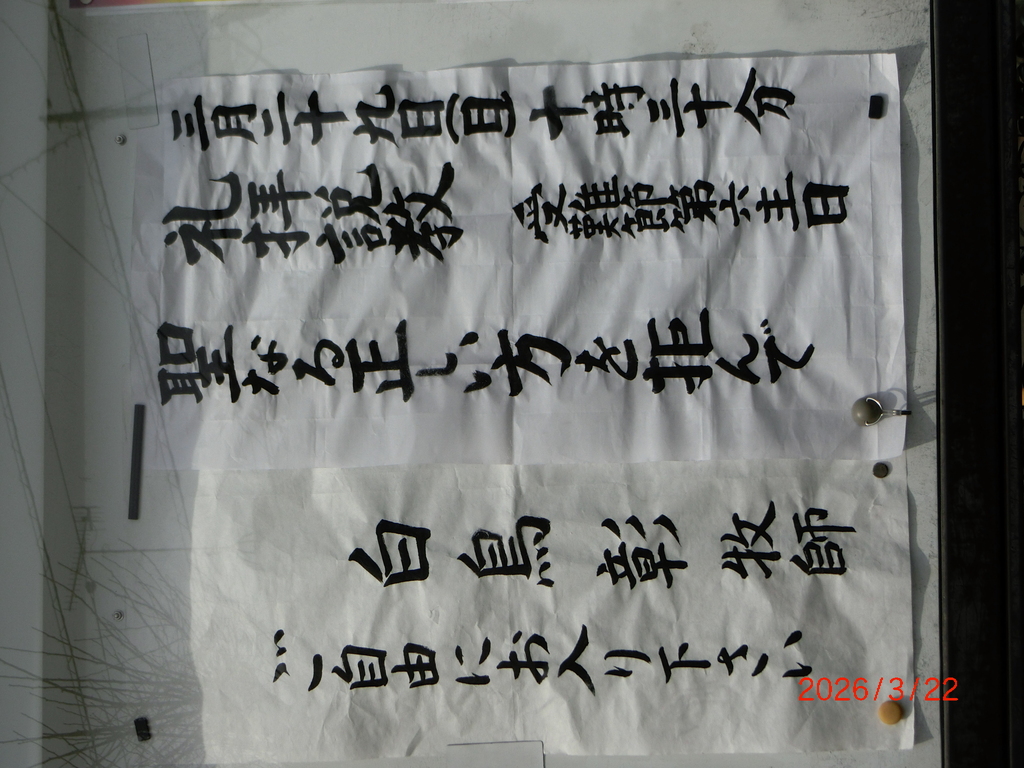 三月二十九日(日)十時三十分
礼拝説教 受難節第六主日
聖なる正しい方を拒んで
白鳥 彰 牧師
ご自由にお入り下さい
2026/3/22